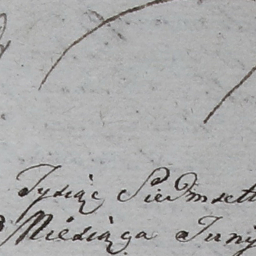 Tysiąc Siedmset
Miesiąca Juny